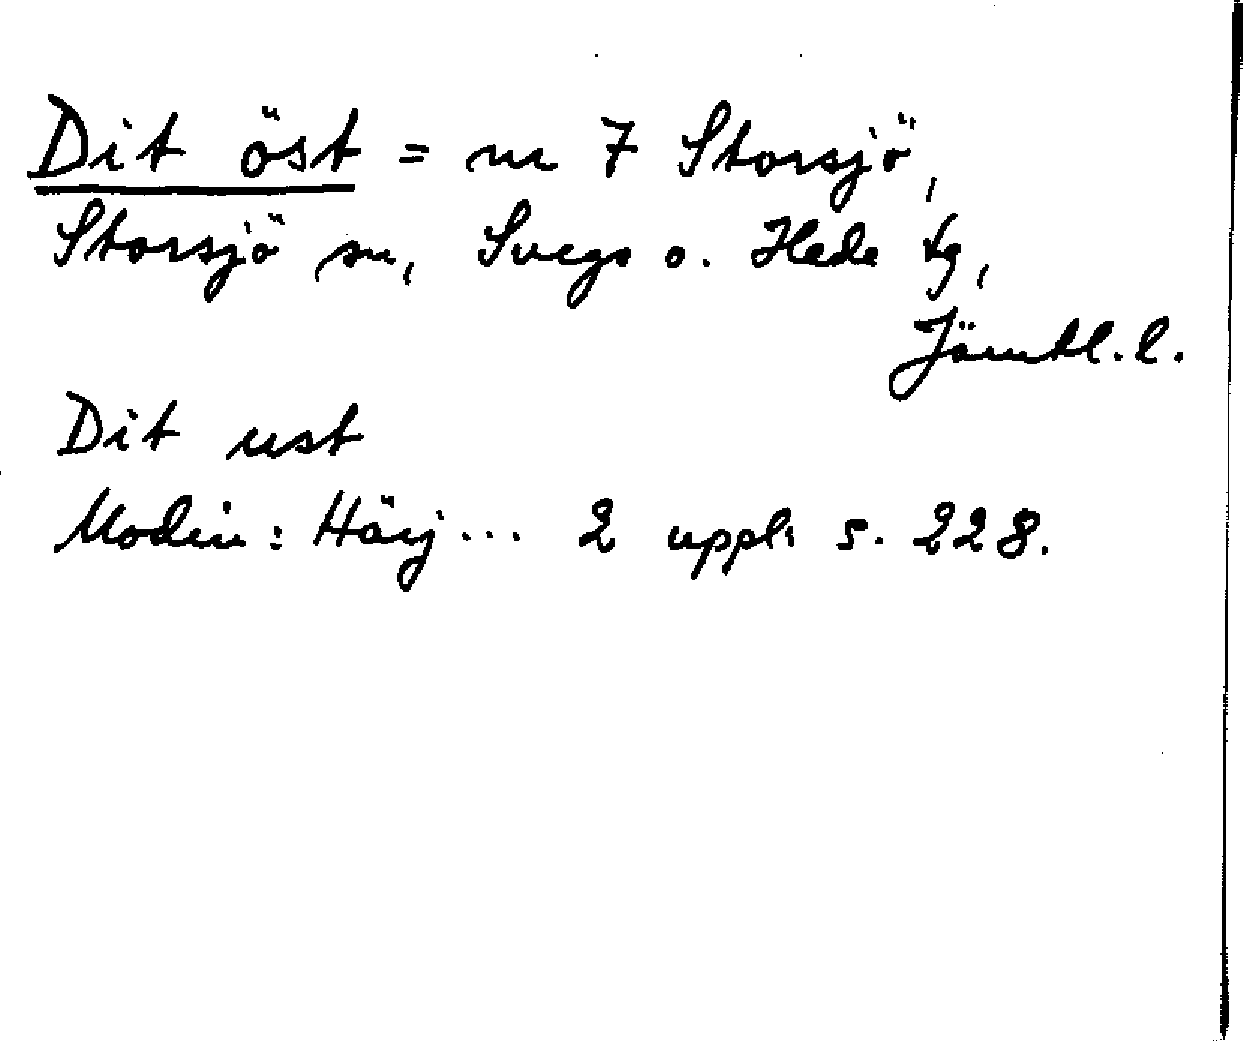 Dit öst = nr 7 Storsjö,
Storsjö sn, Svegs o. Hede tg,
Jämtl. l.
Dit ust
Modin: Härj... 2 uppl. s. 228.